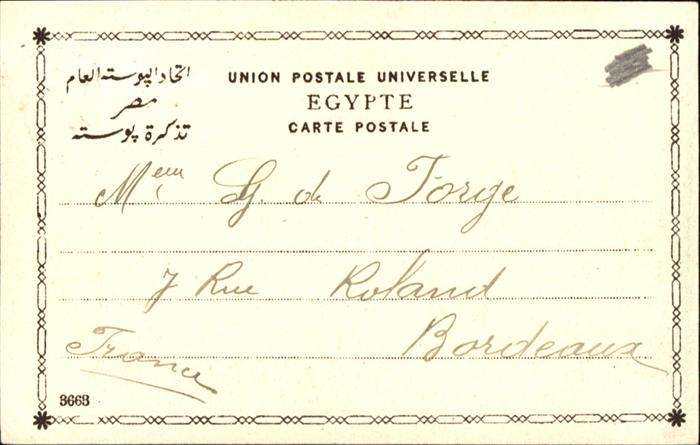 اتحاد البوسته العام
مصر
تذكرة بوسته
UNION POSTALE UNIVERSELLE
EGYPTE
CARTE POSTALE
G. de Forge
7 Rue Roland
Bordeaux
France
3663